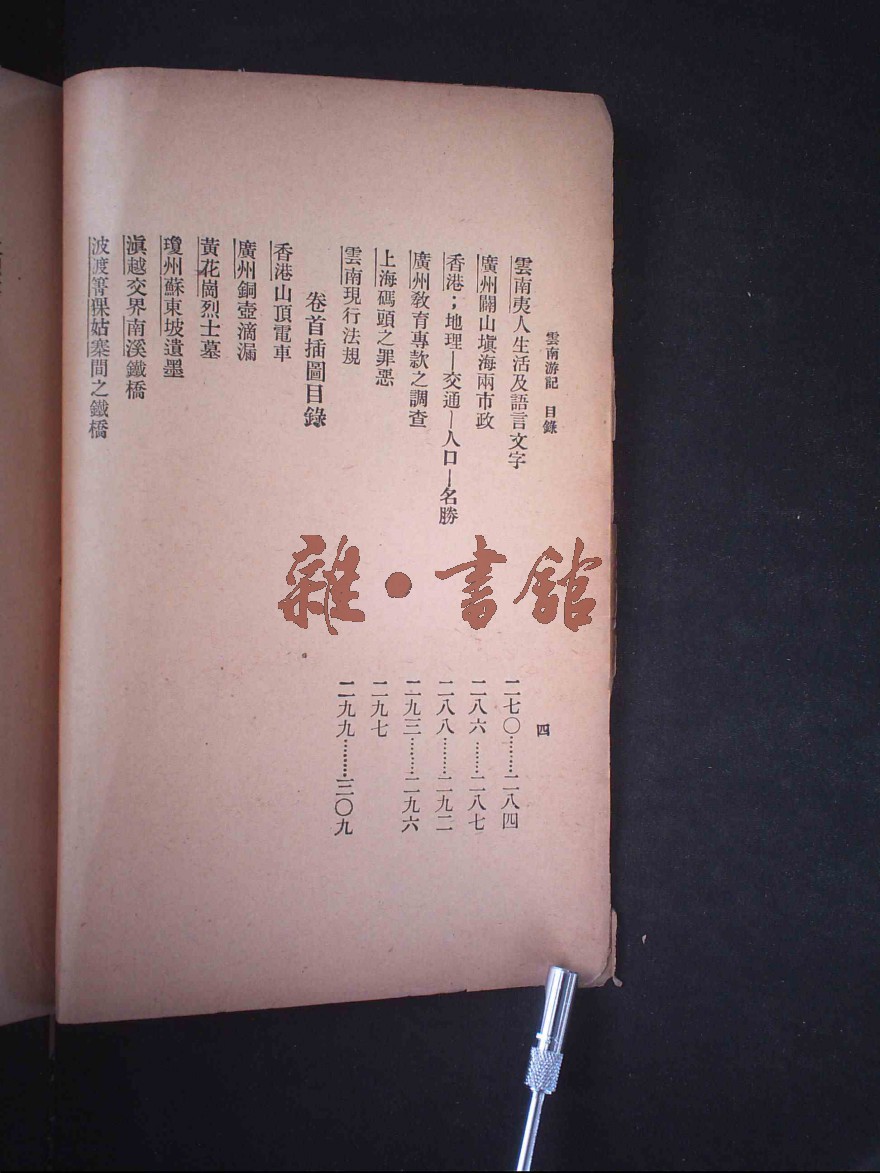 雲南游記 目錄 四
雲南夷人生活及語言文字 二七〇………二八四
廣州闢山塡海兩市政 二八六………二八七
香港；地理—交通—人口—名勝 二八八………二九二
廣州敎育專款之調查 二九三………二九六
上海碼頭之罪惡 二九七
雲南現行法規 二九九………三〇九
卷首插圖目錄
香港山頂電車
廣州銅壺滴漏
黃花崗烈士墓
瓊州蘇東坡遺墨
滇越交界南溪鐵橋
波渡箐猓姑寨間之鐵橋
雜·書館